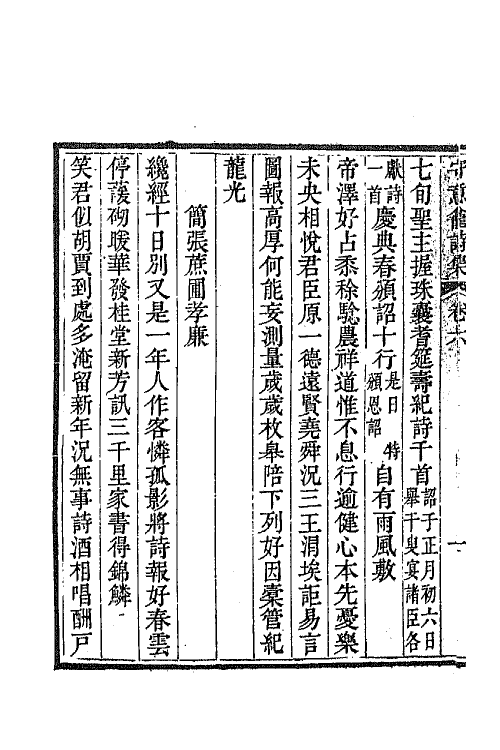 七旬聖主握珠囊耆筵壽紀詩千首詔于正月初六日舉千叟宴諸臣各
獻詩一首慶典春頒詔十行是日特頒恩詔自有雨風敷
帝澤好占黍稌騐農祥道惟不息行逾健心本先憂樂
未央相悅君臣原一德遠賢堯舜況三王涓埃詎易言
圖報高厚何能妄測量歲歲枚皋陪下列好因橐管紀
龍光
簡張蔗圃孝廉
纔經十日別又是一年人作客憐孤影將詩報好春雲
停護砌暖華發桂堂新芳訊三千里家書得錦鱗
笑君似胡賈到處多淹留新年況無事詩酒相唱酬戸
卷六
一